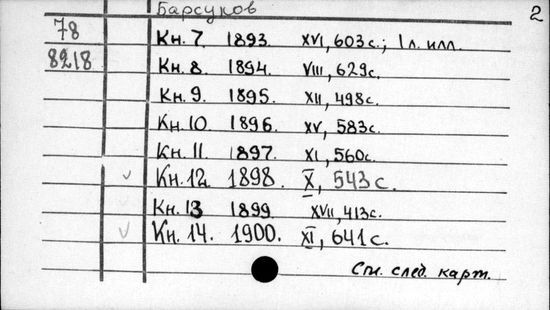 Барсуков 2
78 Кн. 7 1893. XVI, 603 с.; 1 л. илл.
8218 Кн. 8 1894. VIII, 629 с.
Кн. 9 1895. XII, 498 с.
Кн. 10 1896. XV, 583 с.
Кн. 11 1897. XI, 560 с.
✓ Кн. 12. 1898. X, 543 с.
Кн. 13 1899 XVII, 413 с.
✓ Кн. 14. 1900. XI, 641 с.
См. след. карт.